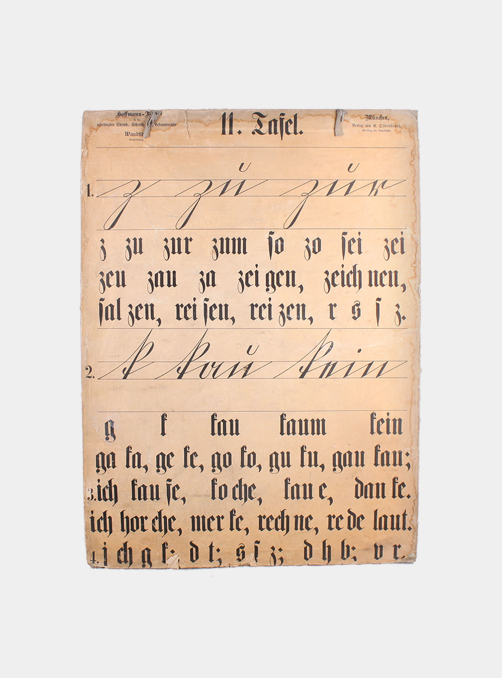 11. Tafel.
München,
1. z zu zur
z zu zur zum so zo sei zei
zeu zau za zei gen, zeich nen,
sal zen, rei sen, rei zen, r s ſ z.
2. k kau kein
g k kau kaum kein
ga ka, ge ke, go ko, gu ku, gau kau;
3. ich kau fe, ko che, kau e, dan ke.
ich hor che, mer ke, rech ne, re de laut.
4. j ch g k; d t; s ſ z; d h b; v r.